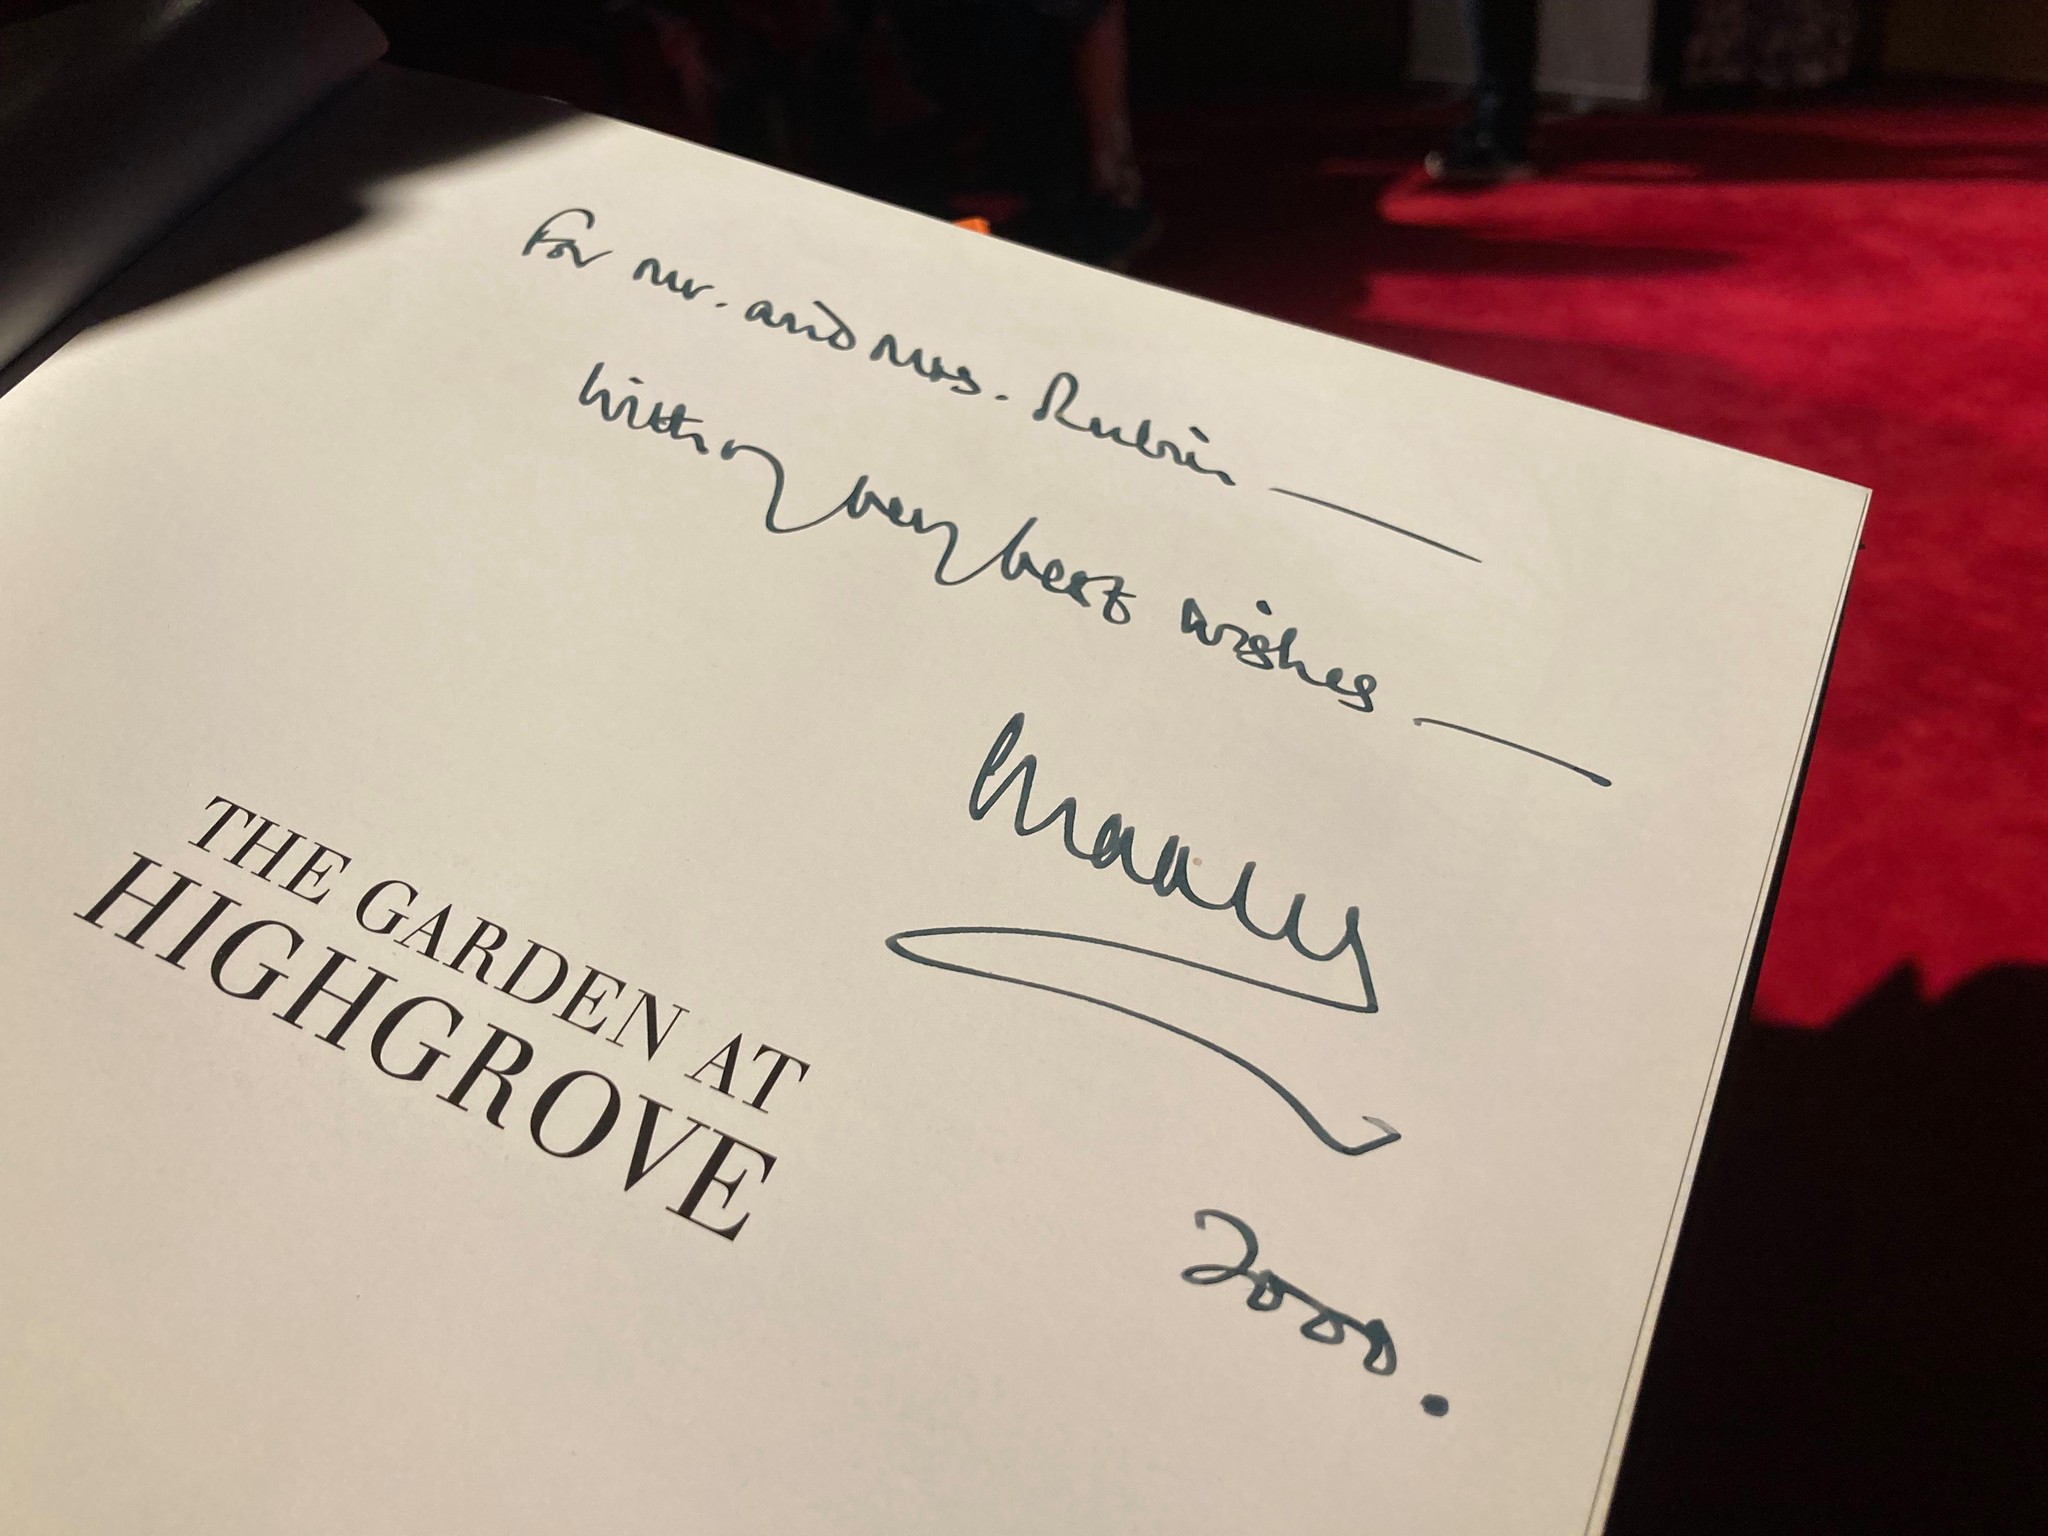 For Mr. and Mrs. Rubin —
With my very best wishes —
Charles
2000.
THE GARDEN AT
HIGHGROVE